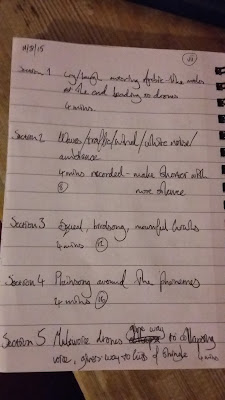 11/5/15
Section 1 cry/laugh meeting
at the end leading to drones
4 mins
Section 2 Waves/traffic/wind/white noise/
ambience
4 mins recorded - make shorter with
8 more silence
Section 3 Squeal, birdsong, mournful howls
4 mins 12
Section 4 Plainsong around the phonemes
4 mins 16
Section 5 Multivoice drones give way to collapsing
voice, gives way to of shingle 4 mins